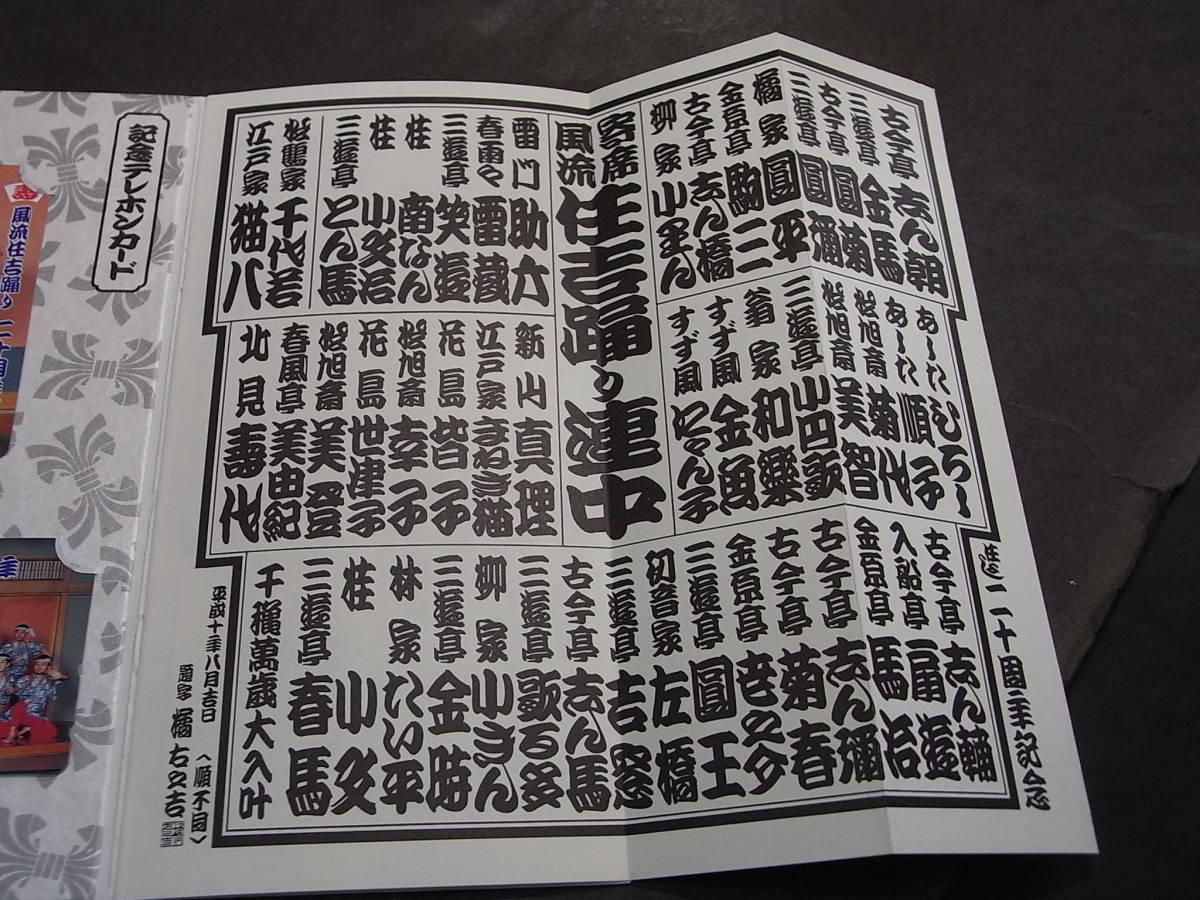 祝二十周年記念
古今亭 志ん朝
三遊亭 金馬
古今亭 圓菊
三遊亭 圓彌
橘家 圓平
金原亭 駒三
古今亭 志ん橋
柳家 小里ん
あしたひろし
あした順子
松旭斎 菊代
松旭斎 美智
三遊亭 小円歌
翁家 和樂
すず風 金魚
すず風 にゃん子
古今亭 志ん輔
入船亭 扇遊
金原亭 馬治
古今亭 志ん彌
古今亭 菊春
金原亭 世之介
三遊亭 圓王
初音家 左橋
三遊亭 吉窓
寄席
風流
住吉踊り連中
雷門 助六
春雨や 雷蔵
三遊亭 笑遊
桂 南なん
桂 小文治
三遊亭 とん馬
松鶴家 千代若
江戸家 猫八
新山 真理
江戸家 まねき猫
花島 皆子
松旭斎 幸子
花島 世津子
松旭斎 美登
春風亭 美由紀
北見 寿代
古今亭 志ん馬
三遊亭 歌る多
柳家 小きん
三遊亭 金時
林家 たい平
桂 小文
三遊亭 春馬
千穐萬歳大入叶
〈順不同〉
平成十年八月吉日
題字 橘右之吉
記念テレホンカード
風流住吉踊り二十周年